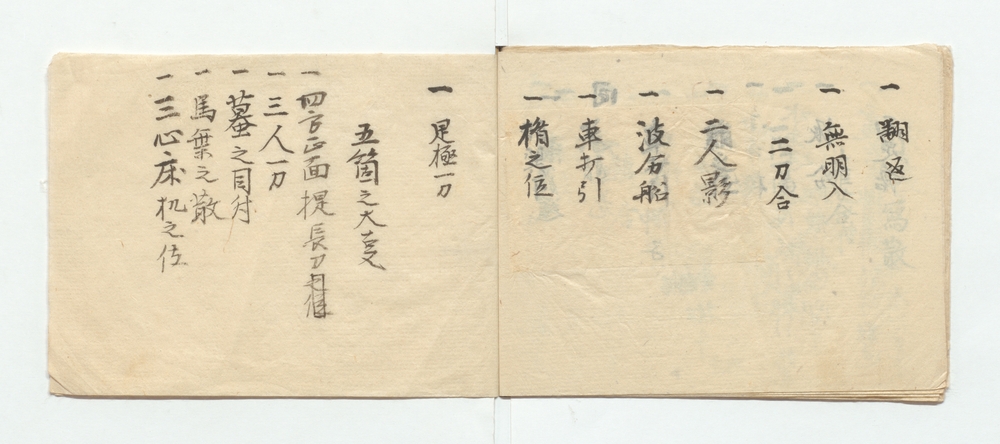 一 翻返
一 無明入
二刀合
一 二人影
一 波分船
一 車打引
一 楫之位
一 足極一刀
五箇之大事
一 四方正面提長刀
一 三人一刀
一 蟇之目付
一 馬乗之散
一 三心床机之位